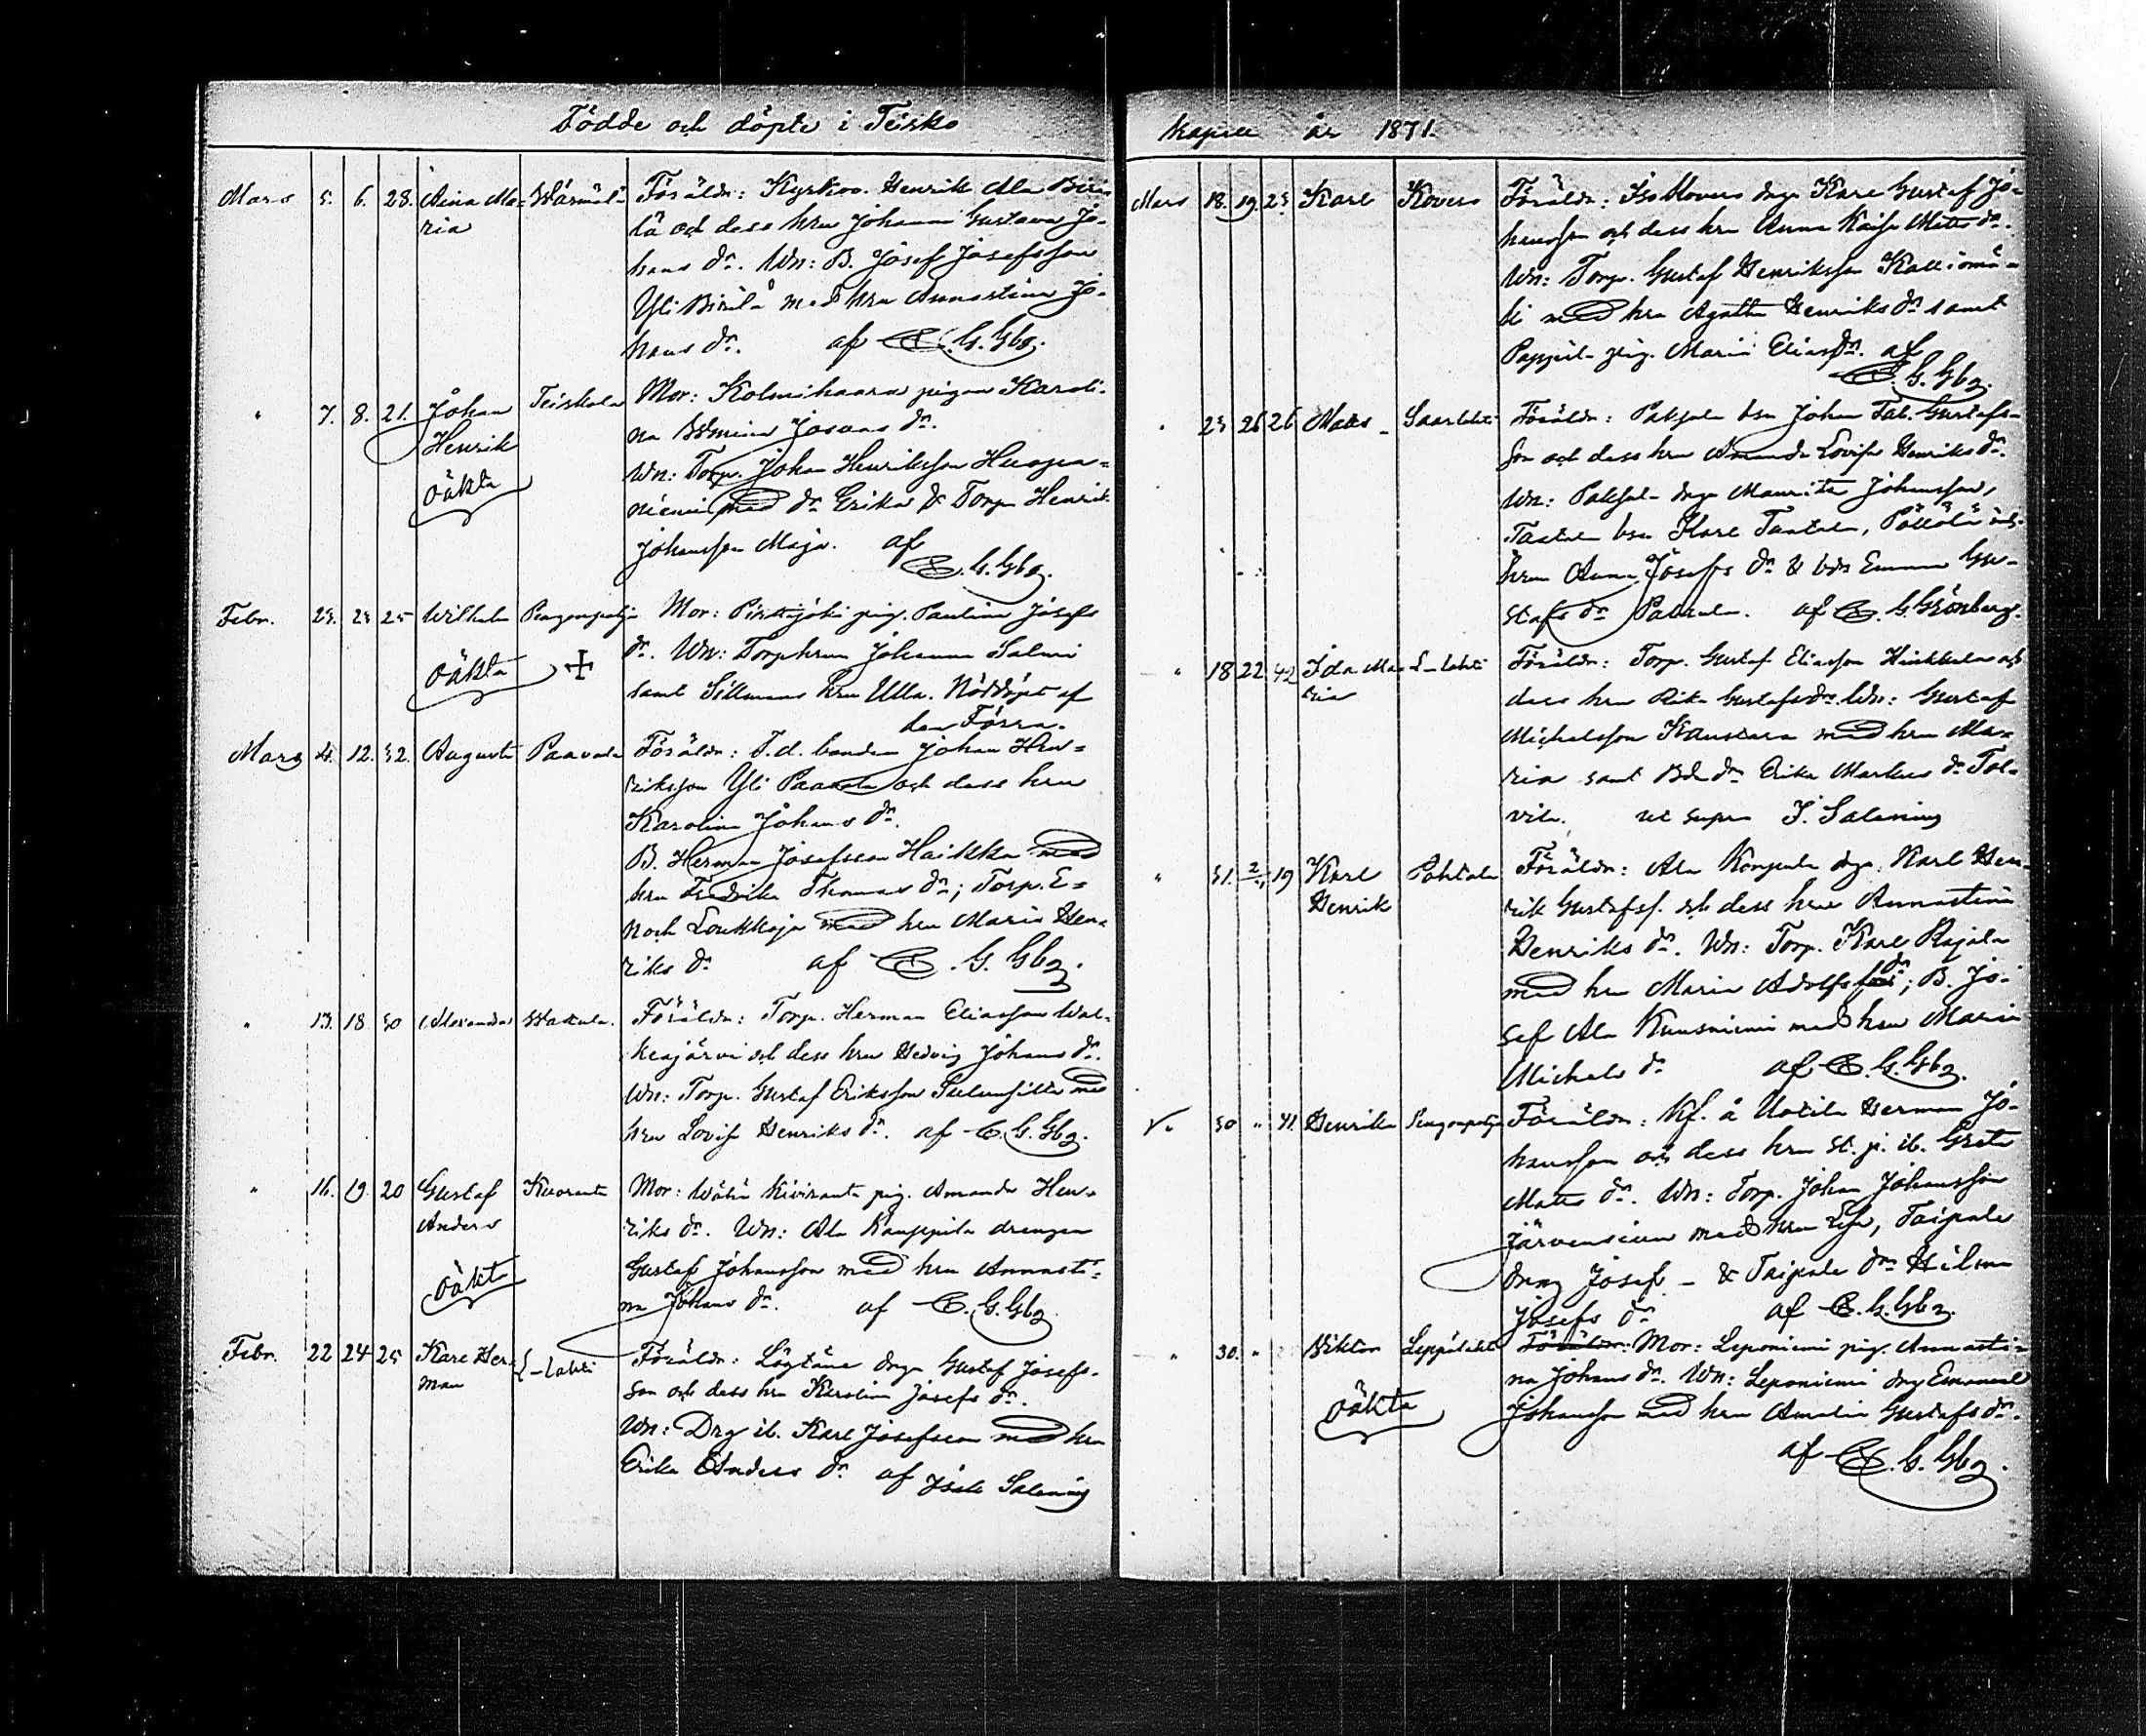 Födde och döpte i Teisko
Mars 5. 6. 28. Aina Ma- Wärmälä Föräldr: Kyrkov. Henrik Ala Biri-
ria lä och dess hru Johanna Gustava Jo-
hans dr. Wn: B. Josef Josefsson
Yli Birilä med hru Annastina Jo-
hans dr. af C. G. Gbg.
" 7. 8. 21. Johan Teiskola Mor: Kolmihaara pigan Karoli-
Henrik na Wilmina Josuas dr.
oäkta Wn: Torp. Johan Henriksson
niemi med dr Erika & Torp. Henrik
Johansson Maja. af
C. G. Gbg.
Febr. 23. 23 25 Wilhelm Pengonpohja Mor: Pirttijoki pig. Paulina Josefs
oäkta dr. Wn: Torphrun Johanna Salmi
samt Sillmans hru Ulla. Nöddöpt af
den Förra.
Mars 4. 12. 32. Augusta Paavola Föräldr: F.d. bonden Johan Hen-
riksson Yli Paavola och dess hru
Karolina Johans dr.
B. Herman Josefsson Haikka med
hru Fredrika Thomas dr; Torp. E-
noch Loukkoja med hru Maria Hen-
riks dr af C. G. Gbg.
" 13. 18. 30 Alexander Wattula. Föräldr: Torp. Herman Eliasson Wal-
keajärvi och dess hru Hedvig Johans dr.
Wn: Torp. Gustaf Eriksson med
hru Lovisa Henriks dr. af C. G. Gbg.
" 16. 19. 20 Gustaf Kuoranta Mor: Wätin Kiviranta pig. Amanda Hen-
Anders riks dr. Wn: Ala Kauppila drengen
oäkta Gustaf Johansson med hru Annasti-
na Johans dr. af C. G. Gbg.
Febr. 22 24 25 Karl Her- L-lahti Föräldr: Lögtäne drg. Gustaf Josefs-
man son och dess hru Karolina Josefs dr.
Wn: Drg ib. Karl Josefsson med hru
Erika Anders dr. af Isak Salenius
Kapell år 1871.
Mars 18. 19. 23 Karl Kovero Föräldr: Iso Kovero drg. Karl Gustaf Jo-
hansson och dess hru Anna Kaisa Matts dr.
Wn: Torp. Gustaf Henriksson Kalliomä-
ki med hru Agatha Henriks dr samt
Pappila pig. Maria Elias dr. af
C. G. Gbg.
" 23 26 26 Matts Saarlahti Föräldr: Paksula bsn Johan Fab. Gustafs-
son och dess hru Amanda Lovisa Henriks dr.
Wn: Paksula drg. Maurits Johansson,
Tastula bsn Karl Tastula, Pöllölä
hru Anna Josefs dr & bdr Emma Gu-
stafs dr Paksula. af C. G. Grönberg.
" 18 22 42 Ida Ma- L-lahti Föräldr: Torp. Gustaf Eliasson Hinkkala och
ria dess hru Rika Gustafsdr. Wn: Gustaf
Michelsson Kanstara med hru Ma-
ria samt Bd dr Erika Markus dr Tol-
vila. ut supra I. Salenius
" 31. 2/4 19 Karl Pohtola Föräldr: Ala Konpula drg. Karl Hen-
Henrik rik Gustafss. och dess hru Annastina
Henriks dr. Wn: Torp. Karl Rajala
med hru Maria Adolfs dr; B. Jo-
sef Ala Kuusniemi med hru Maria
Michels dr af C. G. Gbg.
" 30 " 41. Henrika Pengonpohja Föräldr: Kf. å Uotila Herman Jo-
hansson och dess hru st. p. ib. Greta
Matts dr. Wn: Torp. Johan Johansson
Järvensivu med hru Eva, Taipale
dreng Josef & Taipale dr Hilma
Josefs dr af C. G. Gbg.
" 30. " Viktor Leppälahti Föräldr: Mor: Leponiemi pig. Annasti-
oäkta na Johans dr. Wn: Leponiemi drg Emanuel
Johansson med hru Amalia Gustafs dr.
af C. G. Gbg.